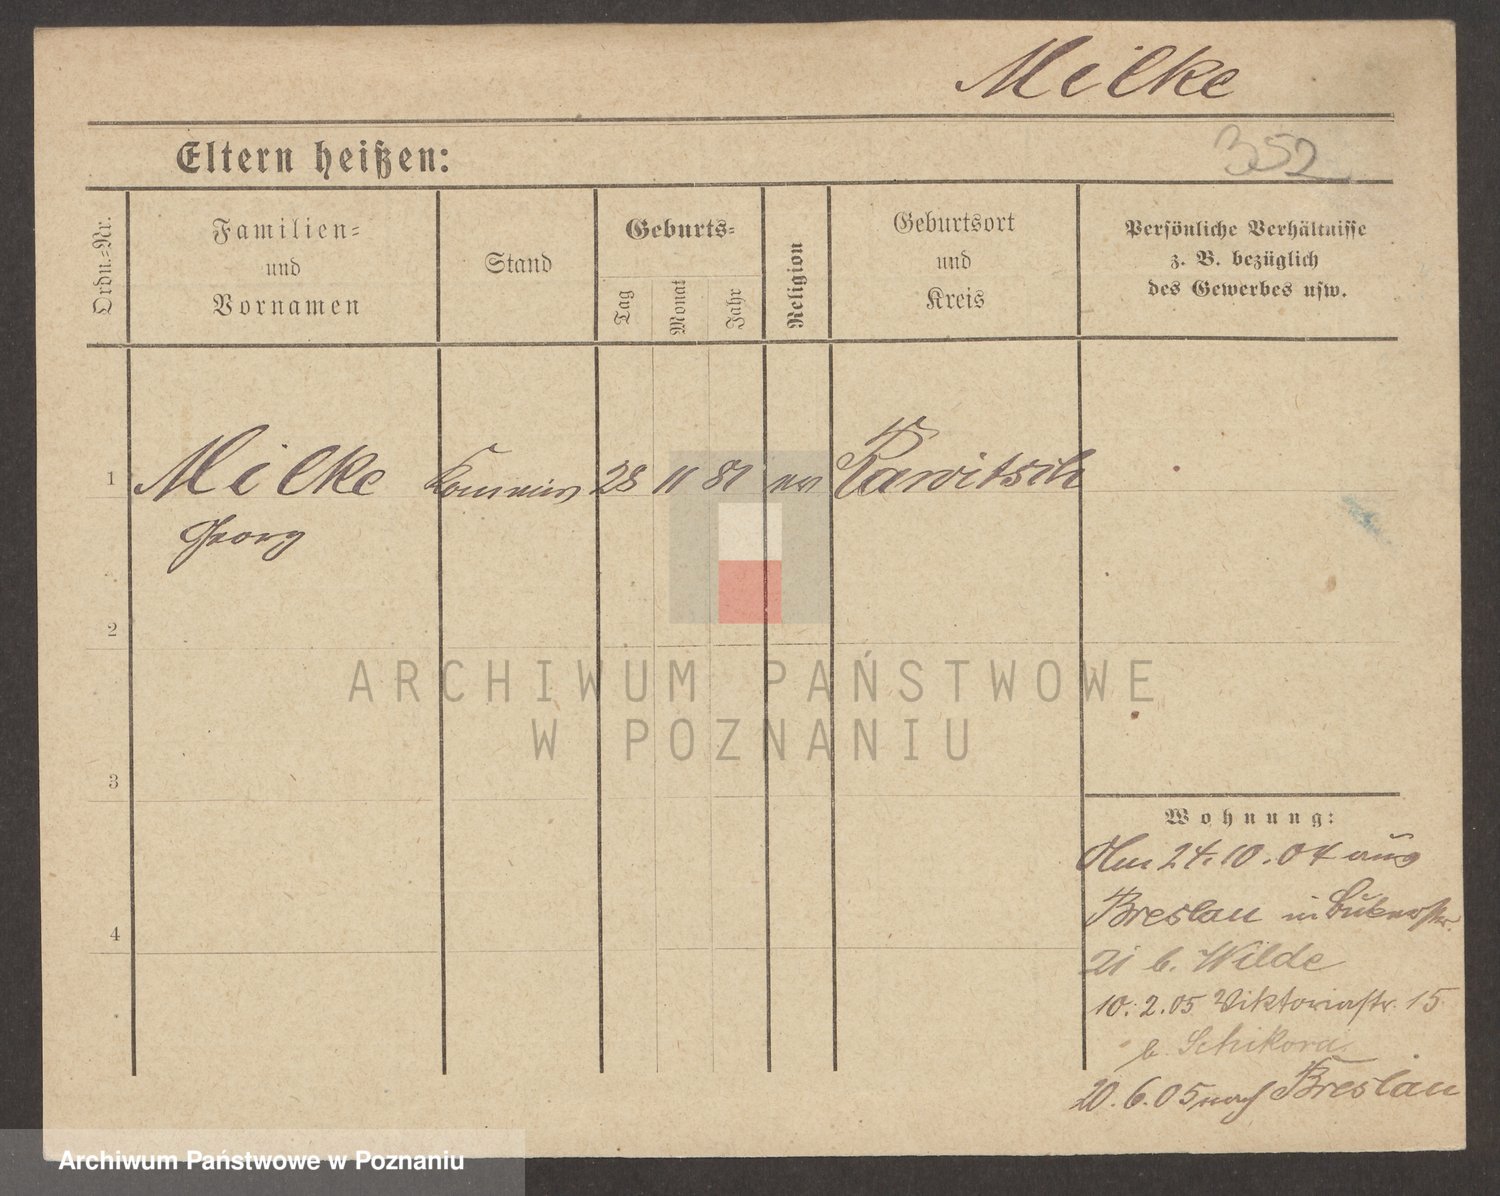 Milke
Eltern heißen:
352
Ordn.-Nr.
Familien-
und
Vornamen
Stand
Geburts-
Tag
Monat
Jahr
Religion
Geburtsort
und
Kreis
Persönliche Verhältnisse
z. B. bezüglich
des Gewerbes usw.
1
Milke
28 11 81
ev
Rawitsch
Georg
2
ARCHIWUM PAŃSTWOWE
W POZNANIU
3
4
Wohnung:
Am 24.10.04 aus
Breslau in
21 b. Wilde
10.2.05 Viktoriastr. 15
b. Schikora
20.6.05 nach Breslau
Archiwum Państwowe w Poznaniu